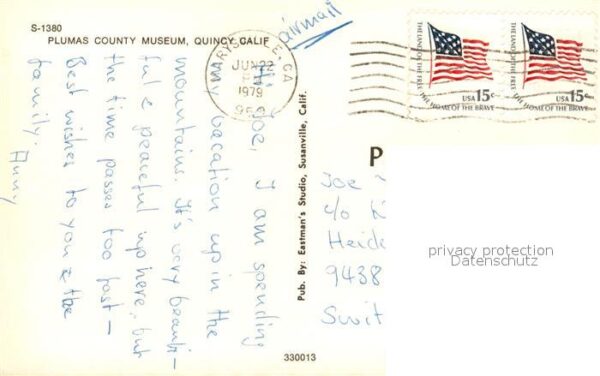 S-1380
PLUMAS COUNTY MUSEUM, QUINCY CALIF
airmail
JUN 22
1979
THE LAND OF THE FREE
USA 15c
THE HOME OF THE BRAVE
THE LAND OF THE FREE
USA 15c
THE HOME OF THE BRAVE
Hi Joe, I am spending
my vacation up in the
mountains. It's very beauti-
ful & peaceful up here, but
the time passes too fast –
Best wishes to you & the
family.
Pub. By: Eastman's Studio, Susanville, Calif.
P
Joe
c/o
Heid
9438
Swit
privacy protection
Datenschutz
330013